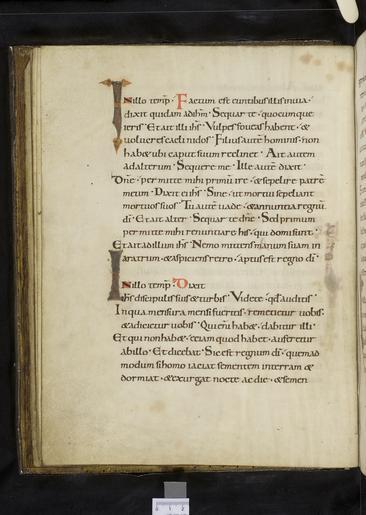 Inillo temp̄. Factum est euntibus illis in uia.
dixit quidam ad ihm̄. Sequar te quocumque
ieris. Et ait illi ihs̄. Vulpes foueas habent. &
uolucres caeli nidos. Filius autē hominis. non
hab& ubi caput suum reclinet. Ait autem
ad alterum. Sequere me. Ille autē dixit.
Dn̄e. permitte mihi primū ire. & sepelire patrē
meum. Dixit ei ihs̄. Sine. ut mortui sepeliant
mortuos suos. Tu autē uade. & annuntia regnū
dī. Et ait alter. Sequar te dn̄e. Sed primum
permitte mihi renuntiare his. qui domi sunt.
Et ait ad illum ihs̄. Nemo mittens manum suam in
aratrum. & aspiciens retro. aptus est regno dī.
Inillo temp̄. Dixit
ihs̄ discipulis suis & turbis. Videte. qd̄ auditis.
In qua mensura mensi fueritis. remetietur uobis.
& adicietur uobis. Qui enī hab&. dabitur illi.
Et qui non hab&. etiam quod habet. auferetur
ab illo. Et dicebat. Sic est regnum dī. quemad
modum si homo iaciat sementem in terram &
dormiat. & exurgat nocte ac die. & semen